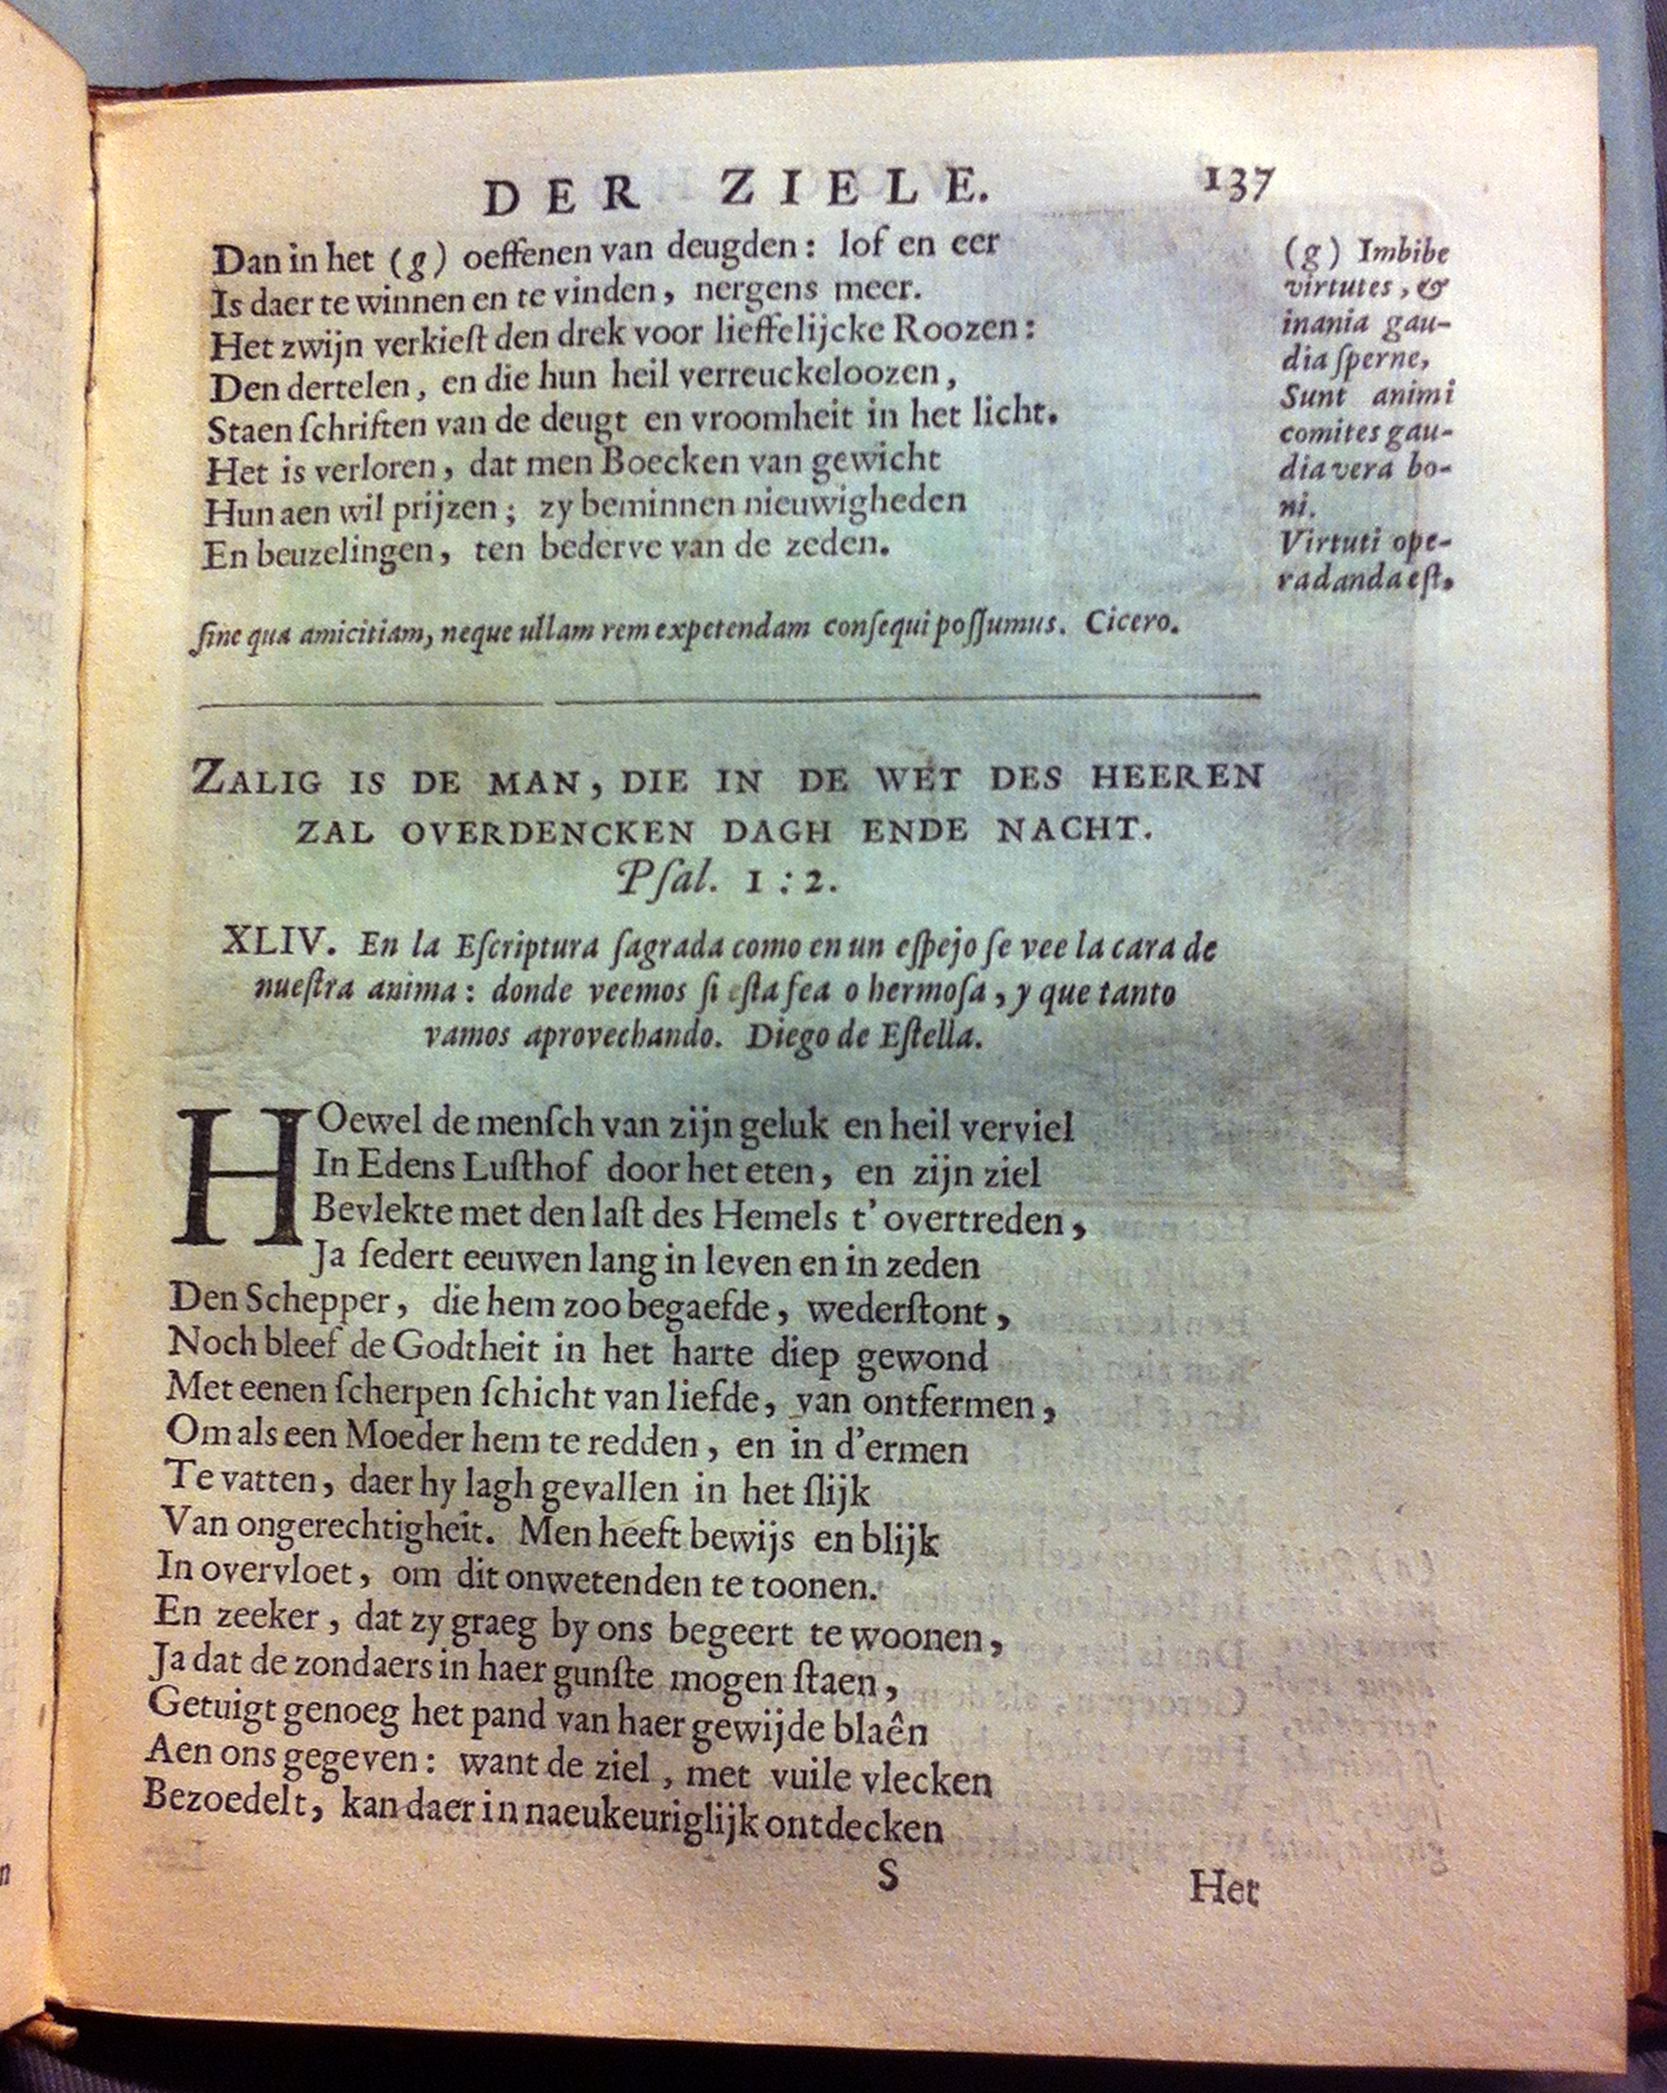 DER ZIELE. 137
Dan in het (g) oeffenen van deugden: lof en eer
Is daer te winnen en te vinden, nergens meer.
Het zwijn verkieſt den drek voor lieffelijcke Roozen:
Den dertelen, en die hun heil verreuckeloozen,
Staen ſchriften van de deugt en vroomheit in het licht.
Het is verloren, dat men Boecken van gewicht
Hun aen wil prijzen; zy beminnen nieuwigheden
En beuzelingen, ten bederve van de zeden.
(g) Imbibe
virtutes, &
inania gau-
dia ſperne,
Sunt animi
comites gau-
dia vera bo-
ni.
Virtuti ope-
ra danda eſt,
ſine qua amicitiam, neque ullam rem expetendam conſequi poſſumus. Cicero.
ZALIG IS DE MAN, DIE IN DE WET DES HEEREN
ZAL OVERDENCKEN DAGH ENDE NACHT.
Pſal. 1:2.
XLIV. En la Eſcriptura ſagrada como en un eſpejo ſe vee la cara de
nueſtra anima: donde veemos ſi eſta fea o hermoſa, y que tanto
vamos aprovechando. Diego de Eſtella.
HOewel de menſch van zijn geluk en heil verviel
In Edens Luſthof door het eten, en zijn ziel
Bevlekte met den laſt des Hemels t' overtreden,
Ja ſedert eeuwen lang in leven en in zeden
Den Schepper, die hem zoo begaefde, wederſtont,
Noch bleef de Godtheit in het harte diep gewond
Met eenen ſcherpen ſchicht van liefde, van ontfermen,
Om als een Moeder hem te redden, en in d'ermen
Te vatten, daer hy lagh gevallen in het ſlijk
Van ongerechtigheit. Men heeft bewijs en blijk
In overvloet, om dit onwetenden te toonen.
En zeeker, dat zy graeg by ons begeert te woonen,
Ja dat de zondaers in haer gunſte mogen ſtaen,
Getuigt genoeg het pand van haer gewijde blaên
Aen ons gegeven: want de ziel, met vuile vlecken
Bezoedelt, kan daer in naeukeuriglijk ontdecken
S Het